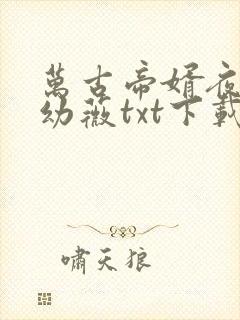 萬古帝婿夜
幼薇txt下載
嘯天狼